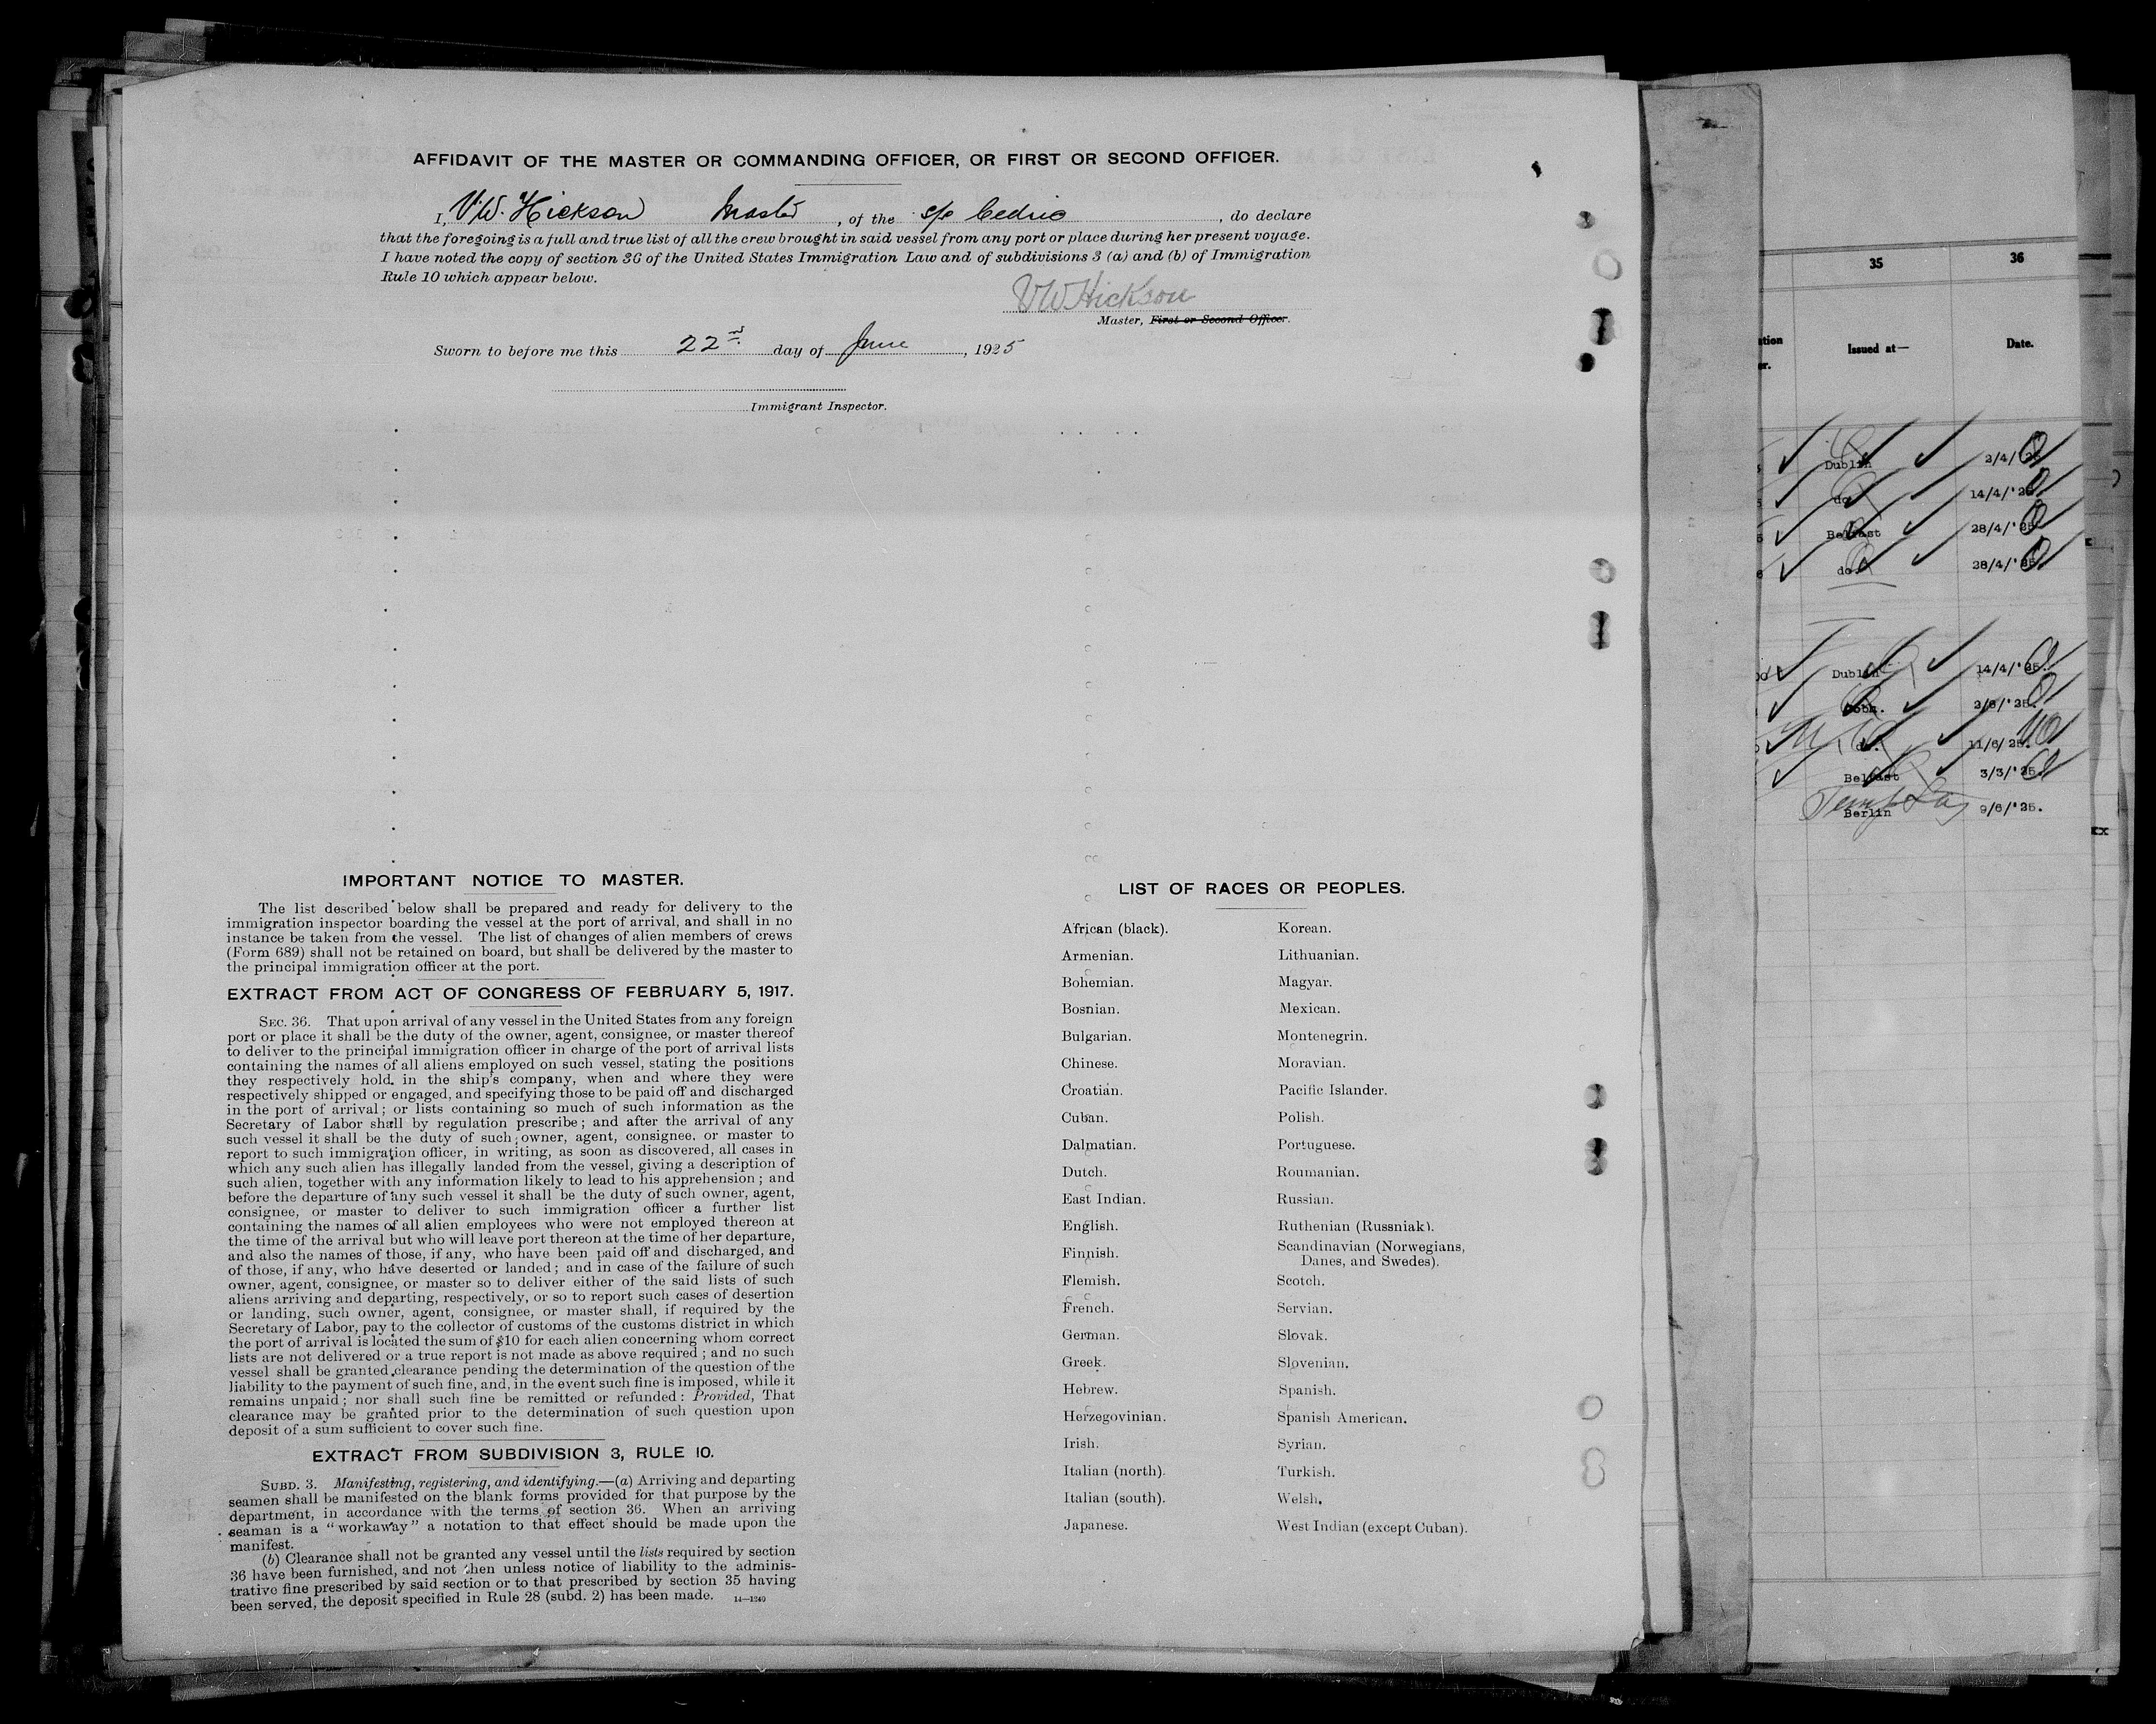 AFFIDAVIT OF THE MASTER OR COMMANDING OFFICER, OR FIRST OR SECOND OFFICER.
I, V.W. Hickson Master, of the s/s Cedric, do declare
that the foregoing is a full and true list of all the crew brought in said vessel from any port or place during her present voyage.
I have noted the copy of section 36 of the United States Immigration Law and of subdivisions 3 (a) and (b) of Immigration
Rule 10 which appear below.
VW Hickson
Master, First or Second Officer.
Sworn to before me this 22nd day of June, 1925
Immigrant Inspector.
IMPORTANT NOTICE TO MASTER.
The list described below shall be prepared and ready for delivery to the
immigration inspector boarding the vessel at the port of arrival, and shall in no
instance be taken from the vessel. The list of changes of alien members of crews
(Form 689) shall not be retained on board, but shall be delivered by the master to
the principal immigration officer at the port.
EXTRACT FROM ACT OF CONGRESS OF FEBRUARY 5, 1917.
SEC. 36. That upon arrival of any vessel in the United States from any foreign
port or place it shall be the duty of the owner, agent, consignee, or master thereof
to deliver to the principal immigration officer in charge of the port of arrival lists
containing the names of all aliens employed on such vessel, stating the positions
they respectively hold in the ship's company, when and where they were
respectively shipped or engaged, and specifying those to be paid off and discharged
in the port of arrival; or lists containing so much of such information as the
Secretary of Labor shall by regulation prescribe; and after the arrival of any
such vessel it shall be the duty of such owner, agent, consignee, or master to
report to such immigration officer, in writing, as soon as discovered, all cases in
which any such alien has illegally landed from the vessel, giving a description of
such alien, together with any information likely to lead to his apprehension; and
before the departure of any such vessel it shall be the duty of such owner, agent,
consignee, or master to deliver to such immigration officer a further list
containing the names of all alien employees who were not employed thereon at
the time of the arrival but who will leave port thereon at the time of her departure,
and also the names of those, if any, who have been paid off and discharged, and
of those, if any, who have deserted or landed; and in case of the failure of such
owner, agent, consignee, or master so to deliver either of the said lists of such
aliens arriving and departing, respectively, or so to report such cases of desertion
or landing, such owner, agent, consignee, or master shall, if required by the
Secretary of Labor, pay to the collector of customs of the customs district in which
the port of arrival is located the sum of $10 for each alien concerning whom correct
lists are not delivered or a true report is not made as above required; and no such
vessel shall be granted clearance pending the determination of the question of the
liability to the payment of such fine, and, in the event such fine is imposed, while it
remains unpaid; nor shall such fine be remitted or refunded: Provided, That
clearance may be granted prior to the determination of such question upon
deposit of a sum sufficient to cover such fine.
EXTRACT FROM SUBDIVISION 3, RULE 10.
SUBD. 3. Manifesting, registering, and identifying.—(a) Arriving and departing
seamen shall be manifested on the blank forms provided for that purpose by the
department, in accordance with the terms of section 36. When an arriving
seaman is a "workaway" a notation to that effect should be made upon the
manifest.
(b) Clearance shall not be granted any vessel until the lists required by section
36 have been furnished, and not then unless notice of liability to the adminis-
trative fine prescribed by said section or to that prescribed by section 35 having
been served, the deposit specified in Rule 28 (subd. 2) has been made. 14—1240
LIST OF RACES OR PEOPLES.
African (black).
Armenian.
Bohemian.
Bosnian.
Bulgarian.
Chinese.
Croatian.
Cuban.
Dalmatian.
Dutch.
East Indian.
English.
Finnish.
Flemish.
French.
German.
Greek.
Hebrew.
Herzegovinian.
Irish.
Italian (north).
Italian (south).
Japanese.
Korean.
Lithuanian.
Magyar.
Mexican.
Montenegrin.
Moravian.
Pacific Islander.
Polish.
Portuguese.
Roumanian.
Russian.
Ruthenian (Russniak).
Scandinavian (Norwegians,
Danes, and Swedes).
Scotch.
Servian.
Slovak.
Slovenian.
Spanish.
Spanish American.
Syrian.
Turkish.
Welsh.
West Indian (except Cuban).
35 36
Issued at— Date.
Dublin 2/4/'25
do 14/4/'25
Belfast 28/4/'25
do. 28/4/'25
Dublin 14/4/'25.
Cobh. 2/6/'25.
do. 11/6/'25.
Belfast 3/3/'25.
Berlin 9/6/'25.